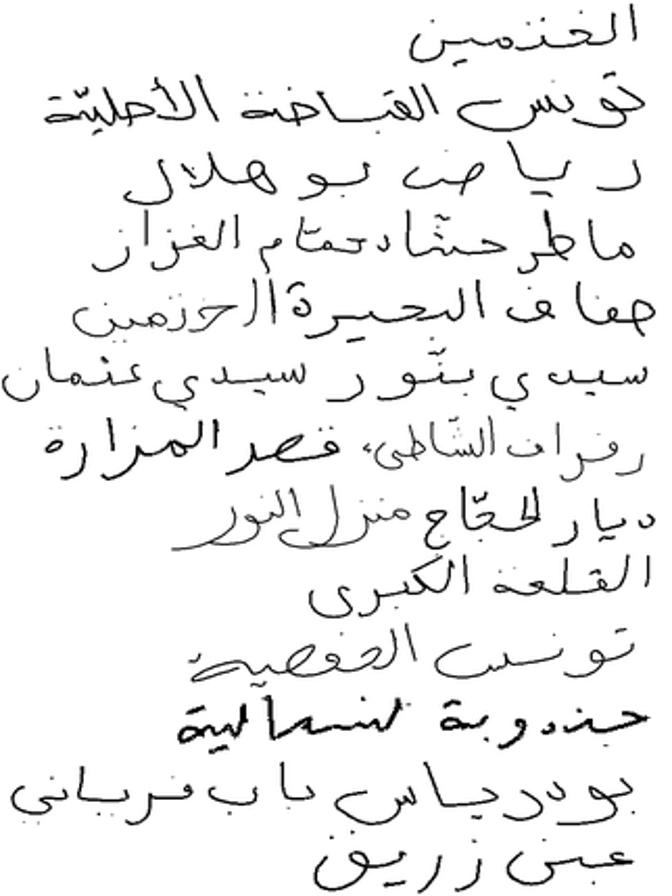 الخنزمين
تونس القباضة الأصليّة
رياض بو هلال
ماطر حشّاد حمّام الغزاز
ضفاف البحيرة الخرزمين
سيدي بنّور سيدي عثمان
رفراف الشّاطئ قصر المزارة
ديار الحجّاج منزل النور
القلعة الكبرى
تونس الحفصية
جندوبة الشمالية
بودرياس باب قرباني
عين زريق